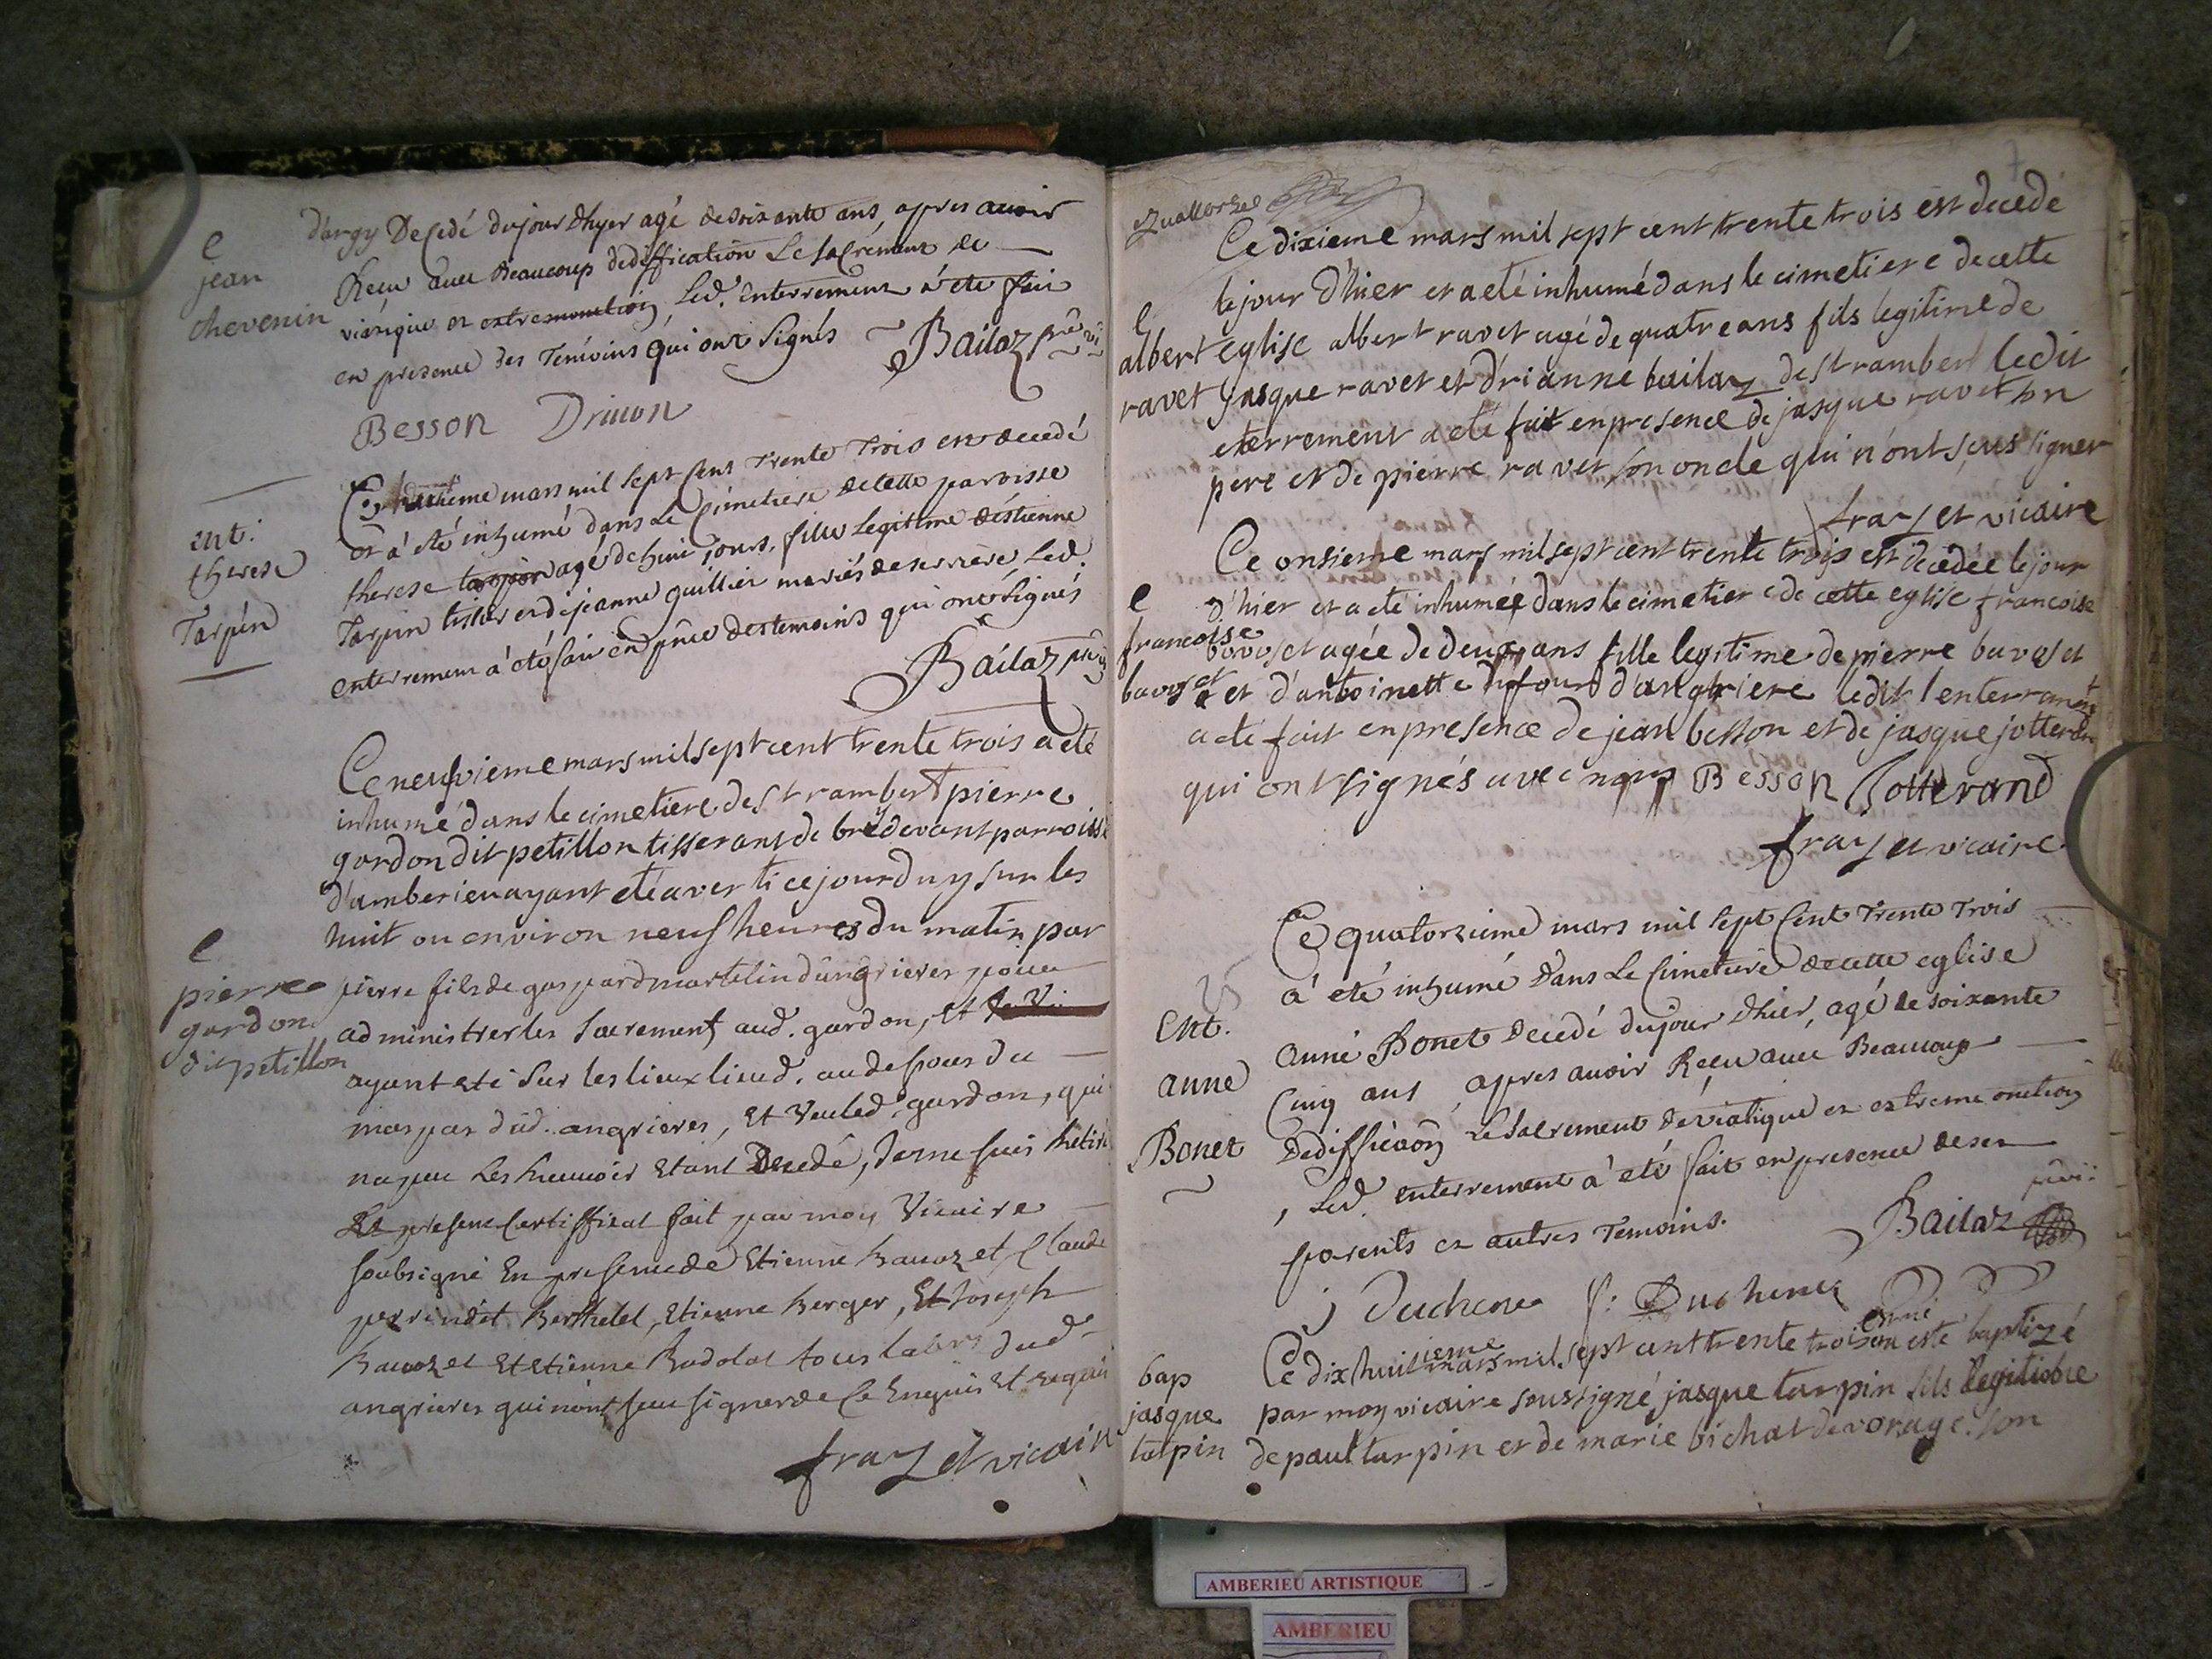 e
jean
chevenin
d'argy Decedé dujour dhyer agé de soixante ans, apres avoir
Receu avec Beaucoup dediffication Le sacrément de
viatique et extremonction, Led. enterrement a eté fait
en presence des Temoins qui ont signés Bailaz
Besson Druon
ent:
therese
Tarpin
Ce huitieme mars mil sept cent trente Trois est decedé
et a été inhumé dans Le Cimetiere decette paroisse
therese tarpin agé de huit jours, fille Legitime déstienne
Tarpin tisser et de jeanne guillier mariés de serriere, Led.
enterrement a été fait en pnce des temoins qui ont signés
Bailaz
e
pierre
gardon
dit petillon
Ce neufvieme mars mil sept cent trente trois a eté
inhumé dans le cimetiere de st rambert pierre
gardon dit petillon tisserant de bredevant parroisse
d'amberieu ayant eté averti ce jourduy sur les
huit ou environ neuf heures du matin par
pierre fils de gaspard martelin dangrieres pour
administrer les sacrements aud. gardon, et
ayant eté sur les lieux lieud. au dessous du
mas pas dud. angrieres, et veu led. gardon, qui
na peu les recevoir etant Decedé, Je me suis retiré
Le present Certifficat fait par moy Vicaire
soubsigné En presence de Etienne bavoz et Claude
perrin dit Berthelet, Etienne Berger, Et Joseph
bavozet et etienne Radolat tous labrs dud
angrieres qui n'ont sceu signer de ce Enquis et requis
fraz et vicaire
quatorze
e
albert
ravet
Ce dixieme mars mil sept cent trente trois est decedé
le jour d'hier et a eté inhumé dans le cimetiere de cette
eglise albert ravet agé de quatre ans fils legitime de
jasque ravet et d'rianne bailaz de st rambert ledit
eterrement a eté fait en presence de jasque ravet son
pere et de pierre ravet son oncle qui n'ont sçus signer
fraz et vicaire
e
francoise
bavoset
Ce onsieme mars mil sept cent trente trois est decedée le jour
d'hier et a eté inhumée dans le cimetiere de cette eglise francoise
bavoset agée de deux ans fille legitime de pierre bavoset
et d'antoinette dufour d'angriere ledit l'enterrament
a eté fait en presence de jean besson et de jasque jotterand
qui ont signés avec nous Besson Jotterand
fraz et vicaire
Ent.
anne
Bonet
Ce quatorzieme mars mil sept Cent Trente Trois
a eté inhumé dans Le Cimetiere decette eglise
anne Bonet decedé dujour dhier, agé de soixante
Cinq ans, apres avoir Receu avec Beaucoup
Dediffication Le sacrement de viatique et extreme onction
, Led. enterrement a été fait en presence de ses
parents et autres Temoins. Bailaz
j Duchene f: Duchene
bap
jasque
tarpin
Ce dixhuitieme mars mil sept cent trente trois est né et a esté baptizé
par moy vicaire soussigné jasque tarpin fils legitime
de paul tarpin et de marie bichat de vorage. son
AMBERIEU ARTISTIQUE
AMBERIEU